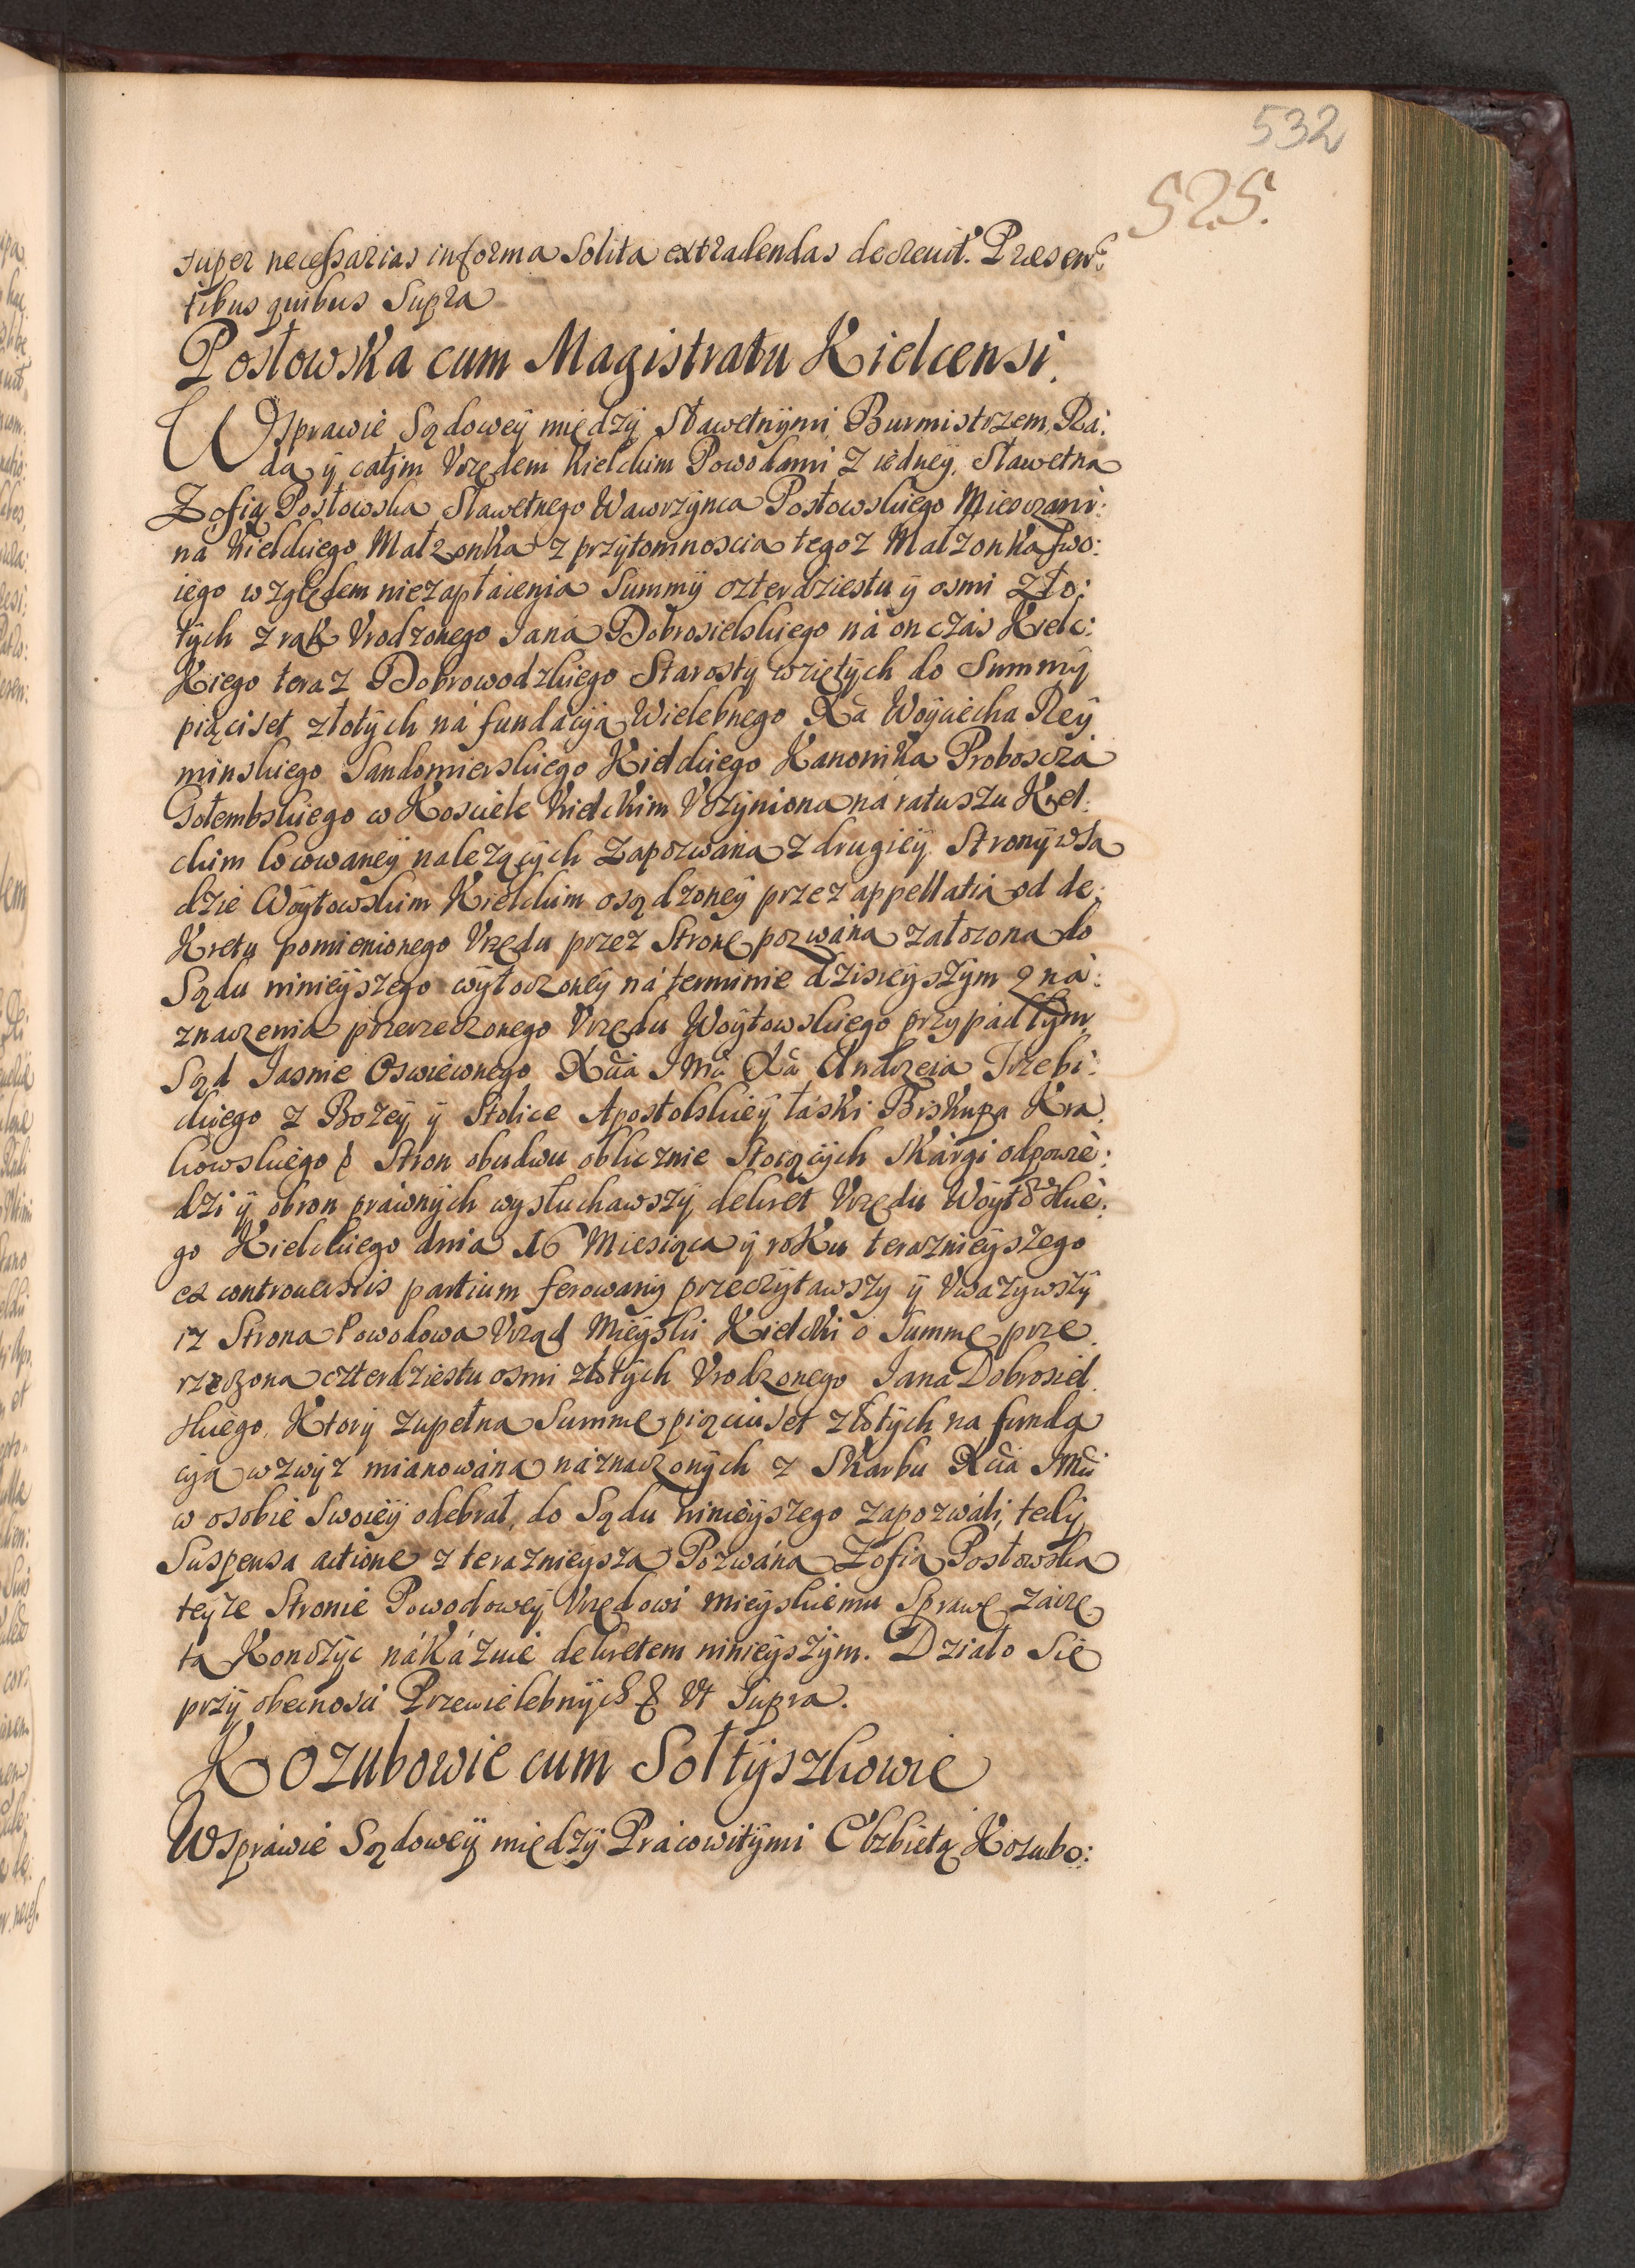 532
525.
super necessarias in forma Solita extradendas decreuit. Præsen:
tibus quibus Supra
Posłowska cum Magistratu Kielcensi.
W Sprawie Sądoweÿ międzÿ Sławetnÿmi Burmistrzem, Rá:
dą ÿ całÿm Vrzędem Kielckim Powodami z iedneÿ, Sławetną
Zofią Posłowską Sławetnego Wawrzÿnca Posłowskiego Miesczani:
na Kielckiego Małzonką z przÿtomnoscią tegoz Małzonka Swo:
iego względem niezapłacenia Summÿ czterdziestu ÿ osmi zło:
tÿch z rąk Vrodzonego Jana Dobrosielskiego ná on czás Kielc:
Kiego teraz Dobrowodzkiego Starostÿ wziętÿch do Summÿ
piąciset złotÿch ná fundacÿą Wielebnego Xa Woÿciecha Reÿ
minskiego Sandomierskiego Kielckiego Kanonika Proboscza
Gołembskiego w Kosciele Kielckim Vczÿnioną ná ratuszu Kiel:
ckim locowaneÿ nalezącÿch Zapozwaną z drugieÿ Stronÿ w Są
dzie Woÿtowskim Kielckim osądzoneÿ przez appellatią od de:
Kretu pomienionego Vrzędu przez Stronę pozwáną załozoną do
Sądu ninieÿszego wÿtoczoneÿ ná terminie dzisieÿszÿm z ná:
znaczenia przerzeczonego Vrzędu Woÿtowskiego przÿpadłÿm
Sąd Jasnie Oswieconego Xcia JMci Xa Andrzeia Trzebi:
ckiego z Bozeÿ ÿ Stolice Apostolskieÿ łáski Biskupa Kra
kowskiego & Stron obudwu oblicznie Stoiącÿch Skárgi odpowie:
dzi ÿ obron práwnÿch wÿsłuchawszÿ dekret Vrzędu Woÿtowskie:
go Kielckiego dnia 16 Miesiąca ÿ roku teraznieÿszego
ex controuersiis partium ferowanÿ przeczÿtawszÿ ÿ Vwazÿwszÿ
iz Strona Powodowa Vrząd Mieÿski Kielcki o Summę prze
rzeczoną czterdziestu osmi złotÿch Vrodzonego Jana Dobrosiel
skiego, Ktorÿ zupełną Summę piąciuset złotÿch na funda
cÿą wzwÿz mianowáną náznaczonÿch z Skarbu Xcia JMci
w osobie Swoieÿ odebrał, do Sądu ninieÿszego zapozwáli, tedÿ
Suspensa actione z teraznieÿszą Pozwáną Zofią Posłowską
teÿze Stronie Powodoweÿ Vrzędowi mieÿskiemu Sprawę zaczę
tą Konczÿc nákázuie dekretem ninieÿszÿm. Działo Się
przÿ obecnosci Przewielebnÿch & Vt Supra.
Kozubowie cum Sołtÿszkowie
W Spráwie Sądoweÿ międzÿ Prácowitÿmi Elzbietą Kozubo: